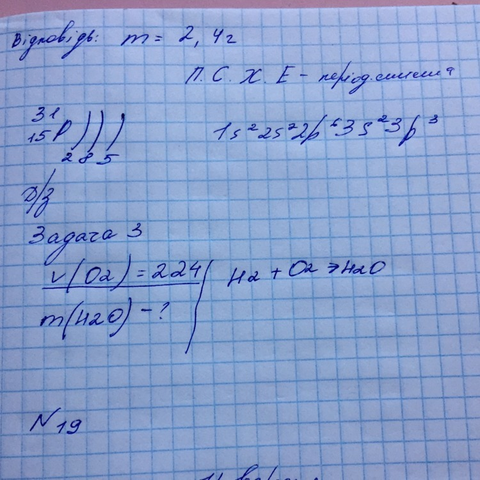 Відповідь: m = 2,4г
П.С.Х.Е - період.система
31
15P)))
2 8 5
1s² 2s² 2p⁶ 3s² 3p³
Д/з
Задача 3
V(O2) = 224
H2 + O2 → H2O
m(H2O) - ?
N 19